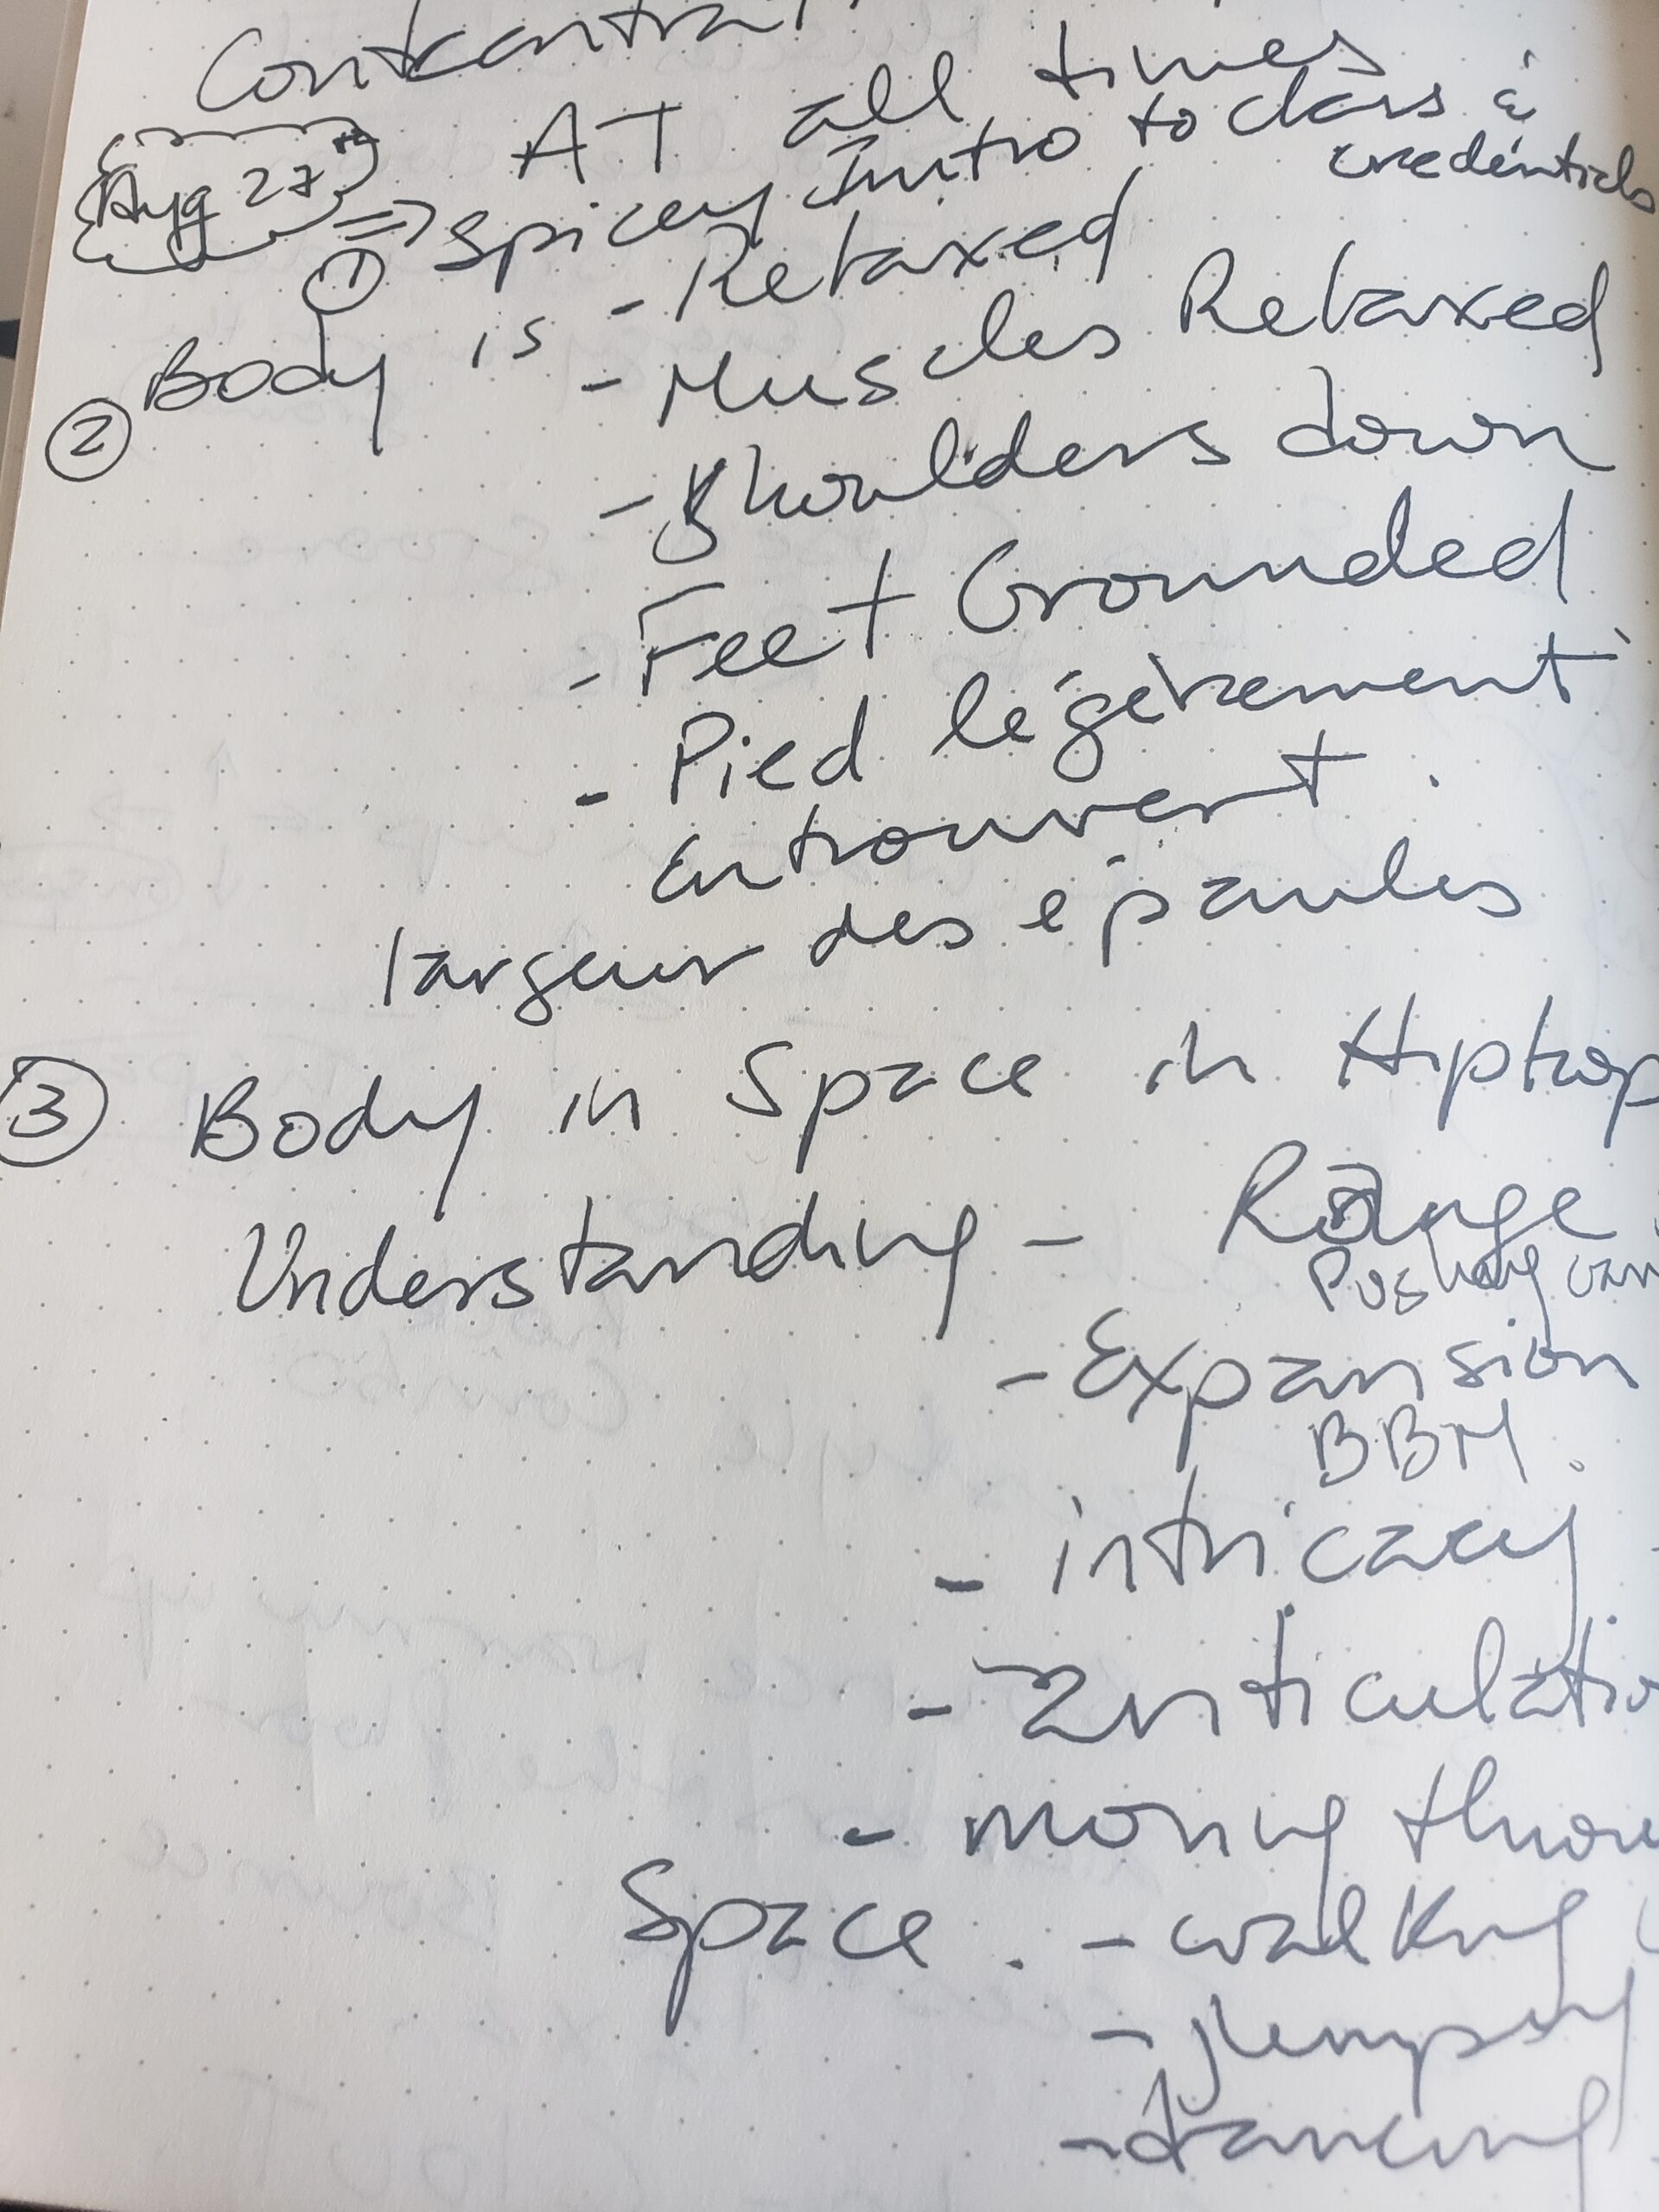 AT all times
Aug 27th
① => Spicey Intro to class &
credentials
② Body is - Relaxed
- Muscles Relaxed
- Shoulders down
- Feet Grounded
- Pied légèrement
entrouvert
largeur des épaules
③ Body in Space in Hiphop
Understanding - Range
Pushing
- Expansion
BBM.
- intricacy
- articulatio
- moving throu
Space. - walking
- jumping
- dancing